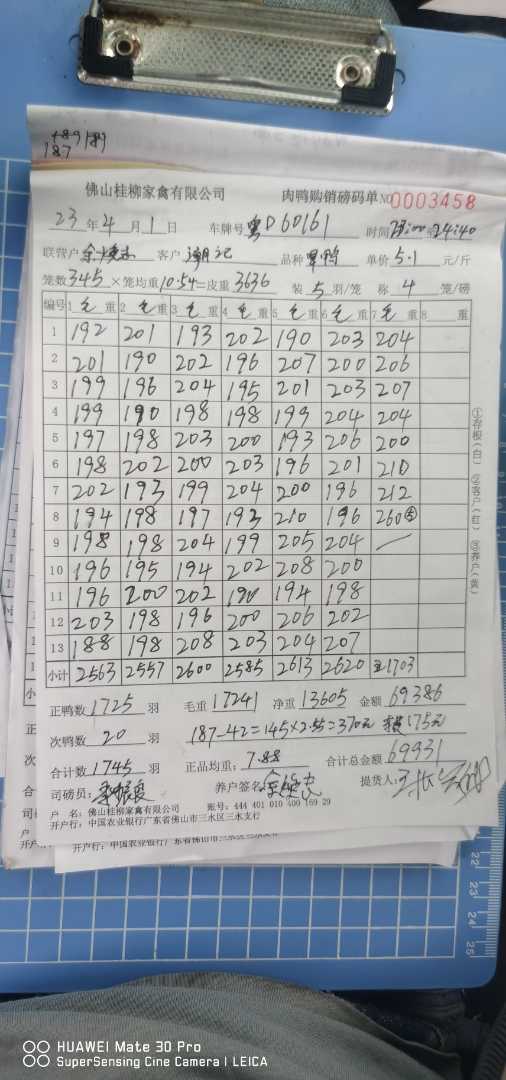 189 189
187
佛山桂柳家禽有限公司 肉鸭购销磅码单 NO 0003458
23 年 4 月 1 日 车牌号 粤D60161 时间 24:40
联营户 客户 潮记 品种 单价 5.1 元/斤
笼数 345 ×笼均重 10.54=皮重 3636 装 5 羽/笼 称 4 笼/磅
编号 1 毛 重 2 毛 重 3 毛 重 4 毛 重 5 毛 重 6 毛 重 7 毛 重 8 重
1 192 201 193 202 190 203 204
2 201 190 202 196 207 200 206
3 199 196 204 195 201 203 207
4 199 190 198 198 199 204 204
5 197 198 203 200 193 206 200
6 198 202 200 203 196 201 210
7 202 193 199 204 200 196 212
8 194 198 197 193 210 196 260⑤
9 198 198 204 199 205 204
10 196 195 194 202 208 200
11 196 200 202 190 194 198
12 203 198 196 200 206 202
13 188 198 208 203 204 207
小计 2563 2557 2600 2585 2613 2620 1703
①存根(白) ②客户(红) ③养户(黄)
正鸭数 1725 羽 毛重 17241 净重 13605 金额 69386
次鸭数 20 羽 187-42=145×2.55=370元 175元
合计数 1745 羽 正品均重: 7.88 合计总金额 69931
司磅员: 养户签名: 提货人:
户 名: 佛山桂柳家禽有限公司 账号: 444 401 010 400 169 29
开户行: 中国农业银行广东省佛山市三水区三水支行
开户行: 中国农业银行广东省佛山市三水区三水支行
22
23
24
25
HUAWEI Mate 30 Pro
SuperSensing Cine Camera | LEICA